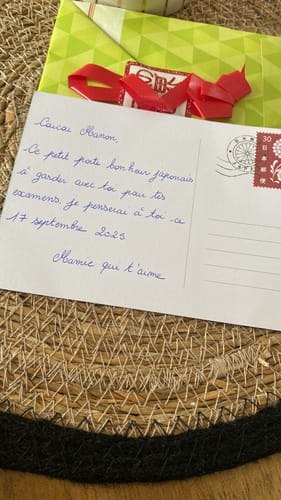 Caicai Manon,
Ce petit porte bonheur japonais
à garder avec toi par tes
examens. je penserai à toi ce
17 septembre 2025.
Mamie qui t'aime
30
日本郵便